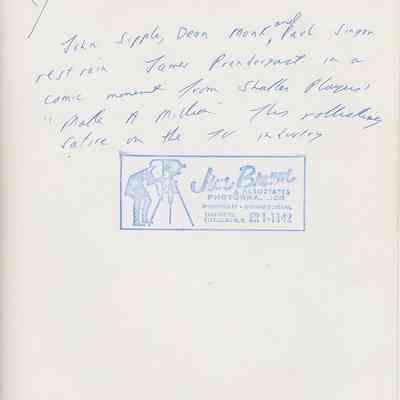 John Sipple, Dean Monk, and Paul Simon
restrain James Prendergast in a
comic moment from Shaller Players'
"Make A Million" This rollicking
satire on the TV industry
& ASSOCIATES
PHOTOGRAPHICS
PORTRAIT - COMMERCIAL
1-1142